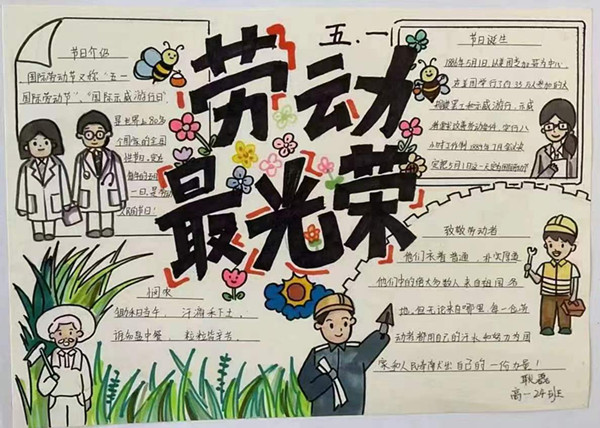 五.一
劳动
最光荣
节日介绍
国际劳动节又称"五一
国际劳动节"、"国际示威游行日",
是世界上80多
个国家的全国
性节日。定在
每年的五月
一日。是
人民
节日!
节日诞生
1886年5月1日,以美国芝加哥为中心,
在美国举行了约35万人参加的大
规模罢工和示威游行,示威
者要求改善劳动条件,实行八
小时工作制。1889年7月
宣布5月1日这一天定为国际劳动节
悯农
锄禾日当午,汗滴禾下土,
谁知盘中餐,粒粒皆辛苦。
致敬劳动者
他们衣着普通,朴实厚道
他们中的绝大多数人来自祖国各
地,但无论来自哪里,每一位劳
动者都用自己的汗水和努力为国
家和人民奉献出自己的一份力量!
高一24班